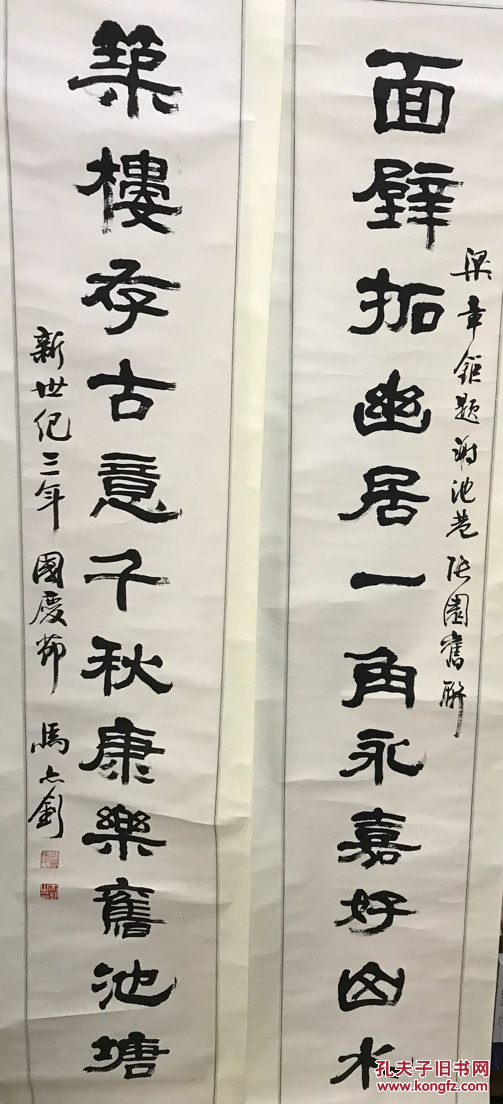 梁章鉅題謝池巷張園舊聯
面壁拓幽居一角永嘉好山水
築樓存古意千秋康樂舊池塘
新世紀三年 國慶節 馬亦釗
孔夫子旧书网
www.kongfz.com